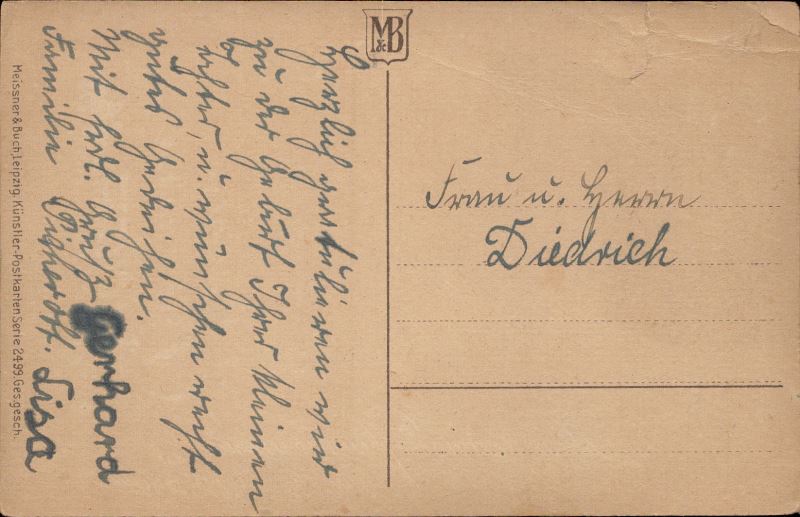 Herzlich gratulieren wir
zu der Geburt Ihrer kleinen
u. wünschen recht
gutes Gedeihen.
Mit herzl. Gruß Gerhard
Familie Lisa
M&B
Frau u. Herrn
Diedrich
Meissner & Buch, Leipzig. Künstler-Postkarten Serie 2499. Ges. gesch.